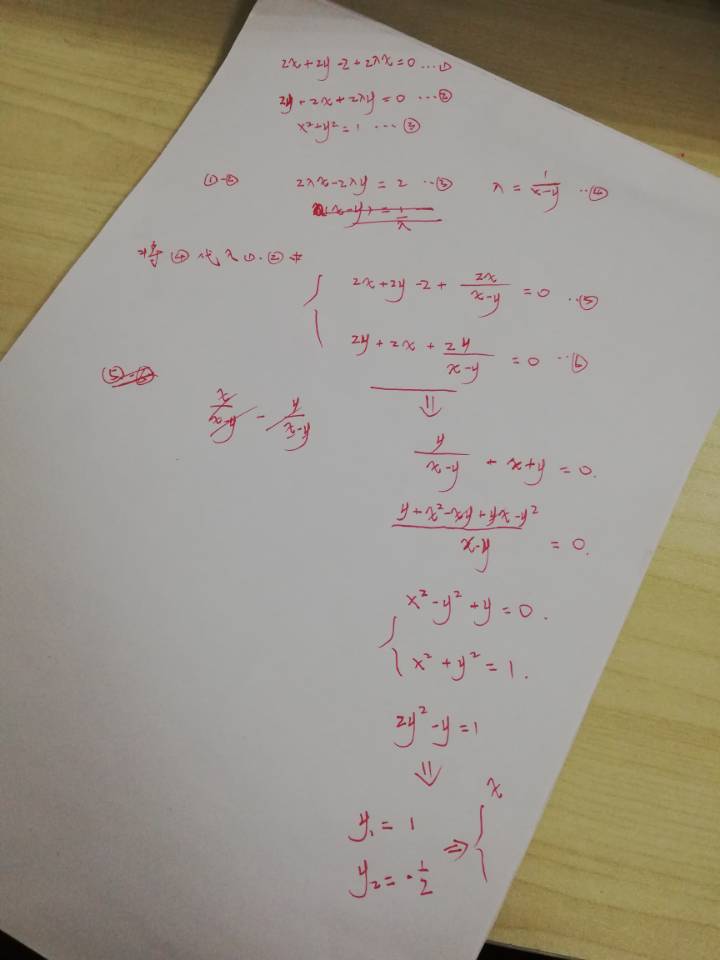 2x+2y-2+2λx=0 …①
2y+2x+2λy=0 …②
x²+y²=1 …③
①-② 2λx-2λy=2 …③ λ=1/(x-y) …④
将④代入①.②中
2x+2y-2+2x/(x-y)=0 …⑤
2y+2x+2y/(x-y)=0 …⑥
⑤-⑥
x/(x-y) - y/(x-y)
⇓
y/(x-y)+x+y=0.
(y+x²-xy+yx-y²)/(x-y)=0.
{ x²-y²+y=0.
x²+y²=1.
2y²-y=1
⇓
y₁=1
y₂=-1/2
⇒ { x